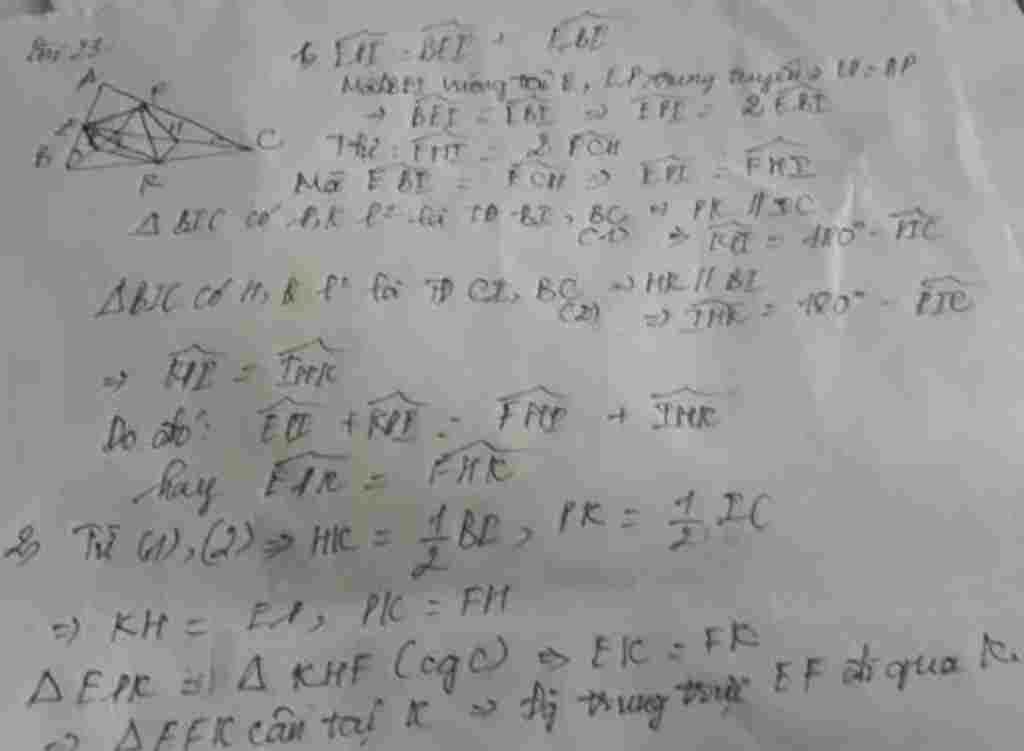 Bài 23
A
F
E
H
B
C
K
1, EPI = BEI + EBI
Mà BEI vuông tại E, EP trung tuyến => EP = BP
=> BEI = EBI => EPI = 2 EBI
Tt : FHI = 2 FCH
Mà EBI = FCH => EPI = FHI
Δ BIC có P, K lº là TĐ BI, BC => PK // IC
(1) => KPI = 180° - PIC
Δ BIC có H, K lº là TĐ CI, BC => HK // BI
(2) => IHK = 180° - BIC
=> KPI = IHK
Do đó: EPI + KPI = FHI + IHK
hay EPK = FHK
2, Từ (1), (2) => HK = 1/2 BI, PK = 1/2 IC
=> KH = EP, PK = FH
Δ EPK = Δ KHF (cgc) => EK = FK
=> Δ EFK cân tại K => Đg trung trực EF đi qua K.